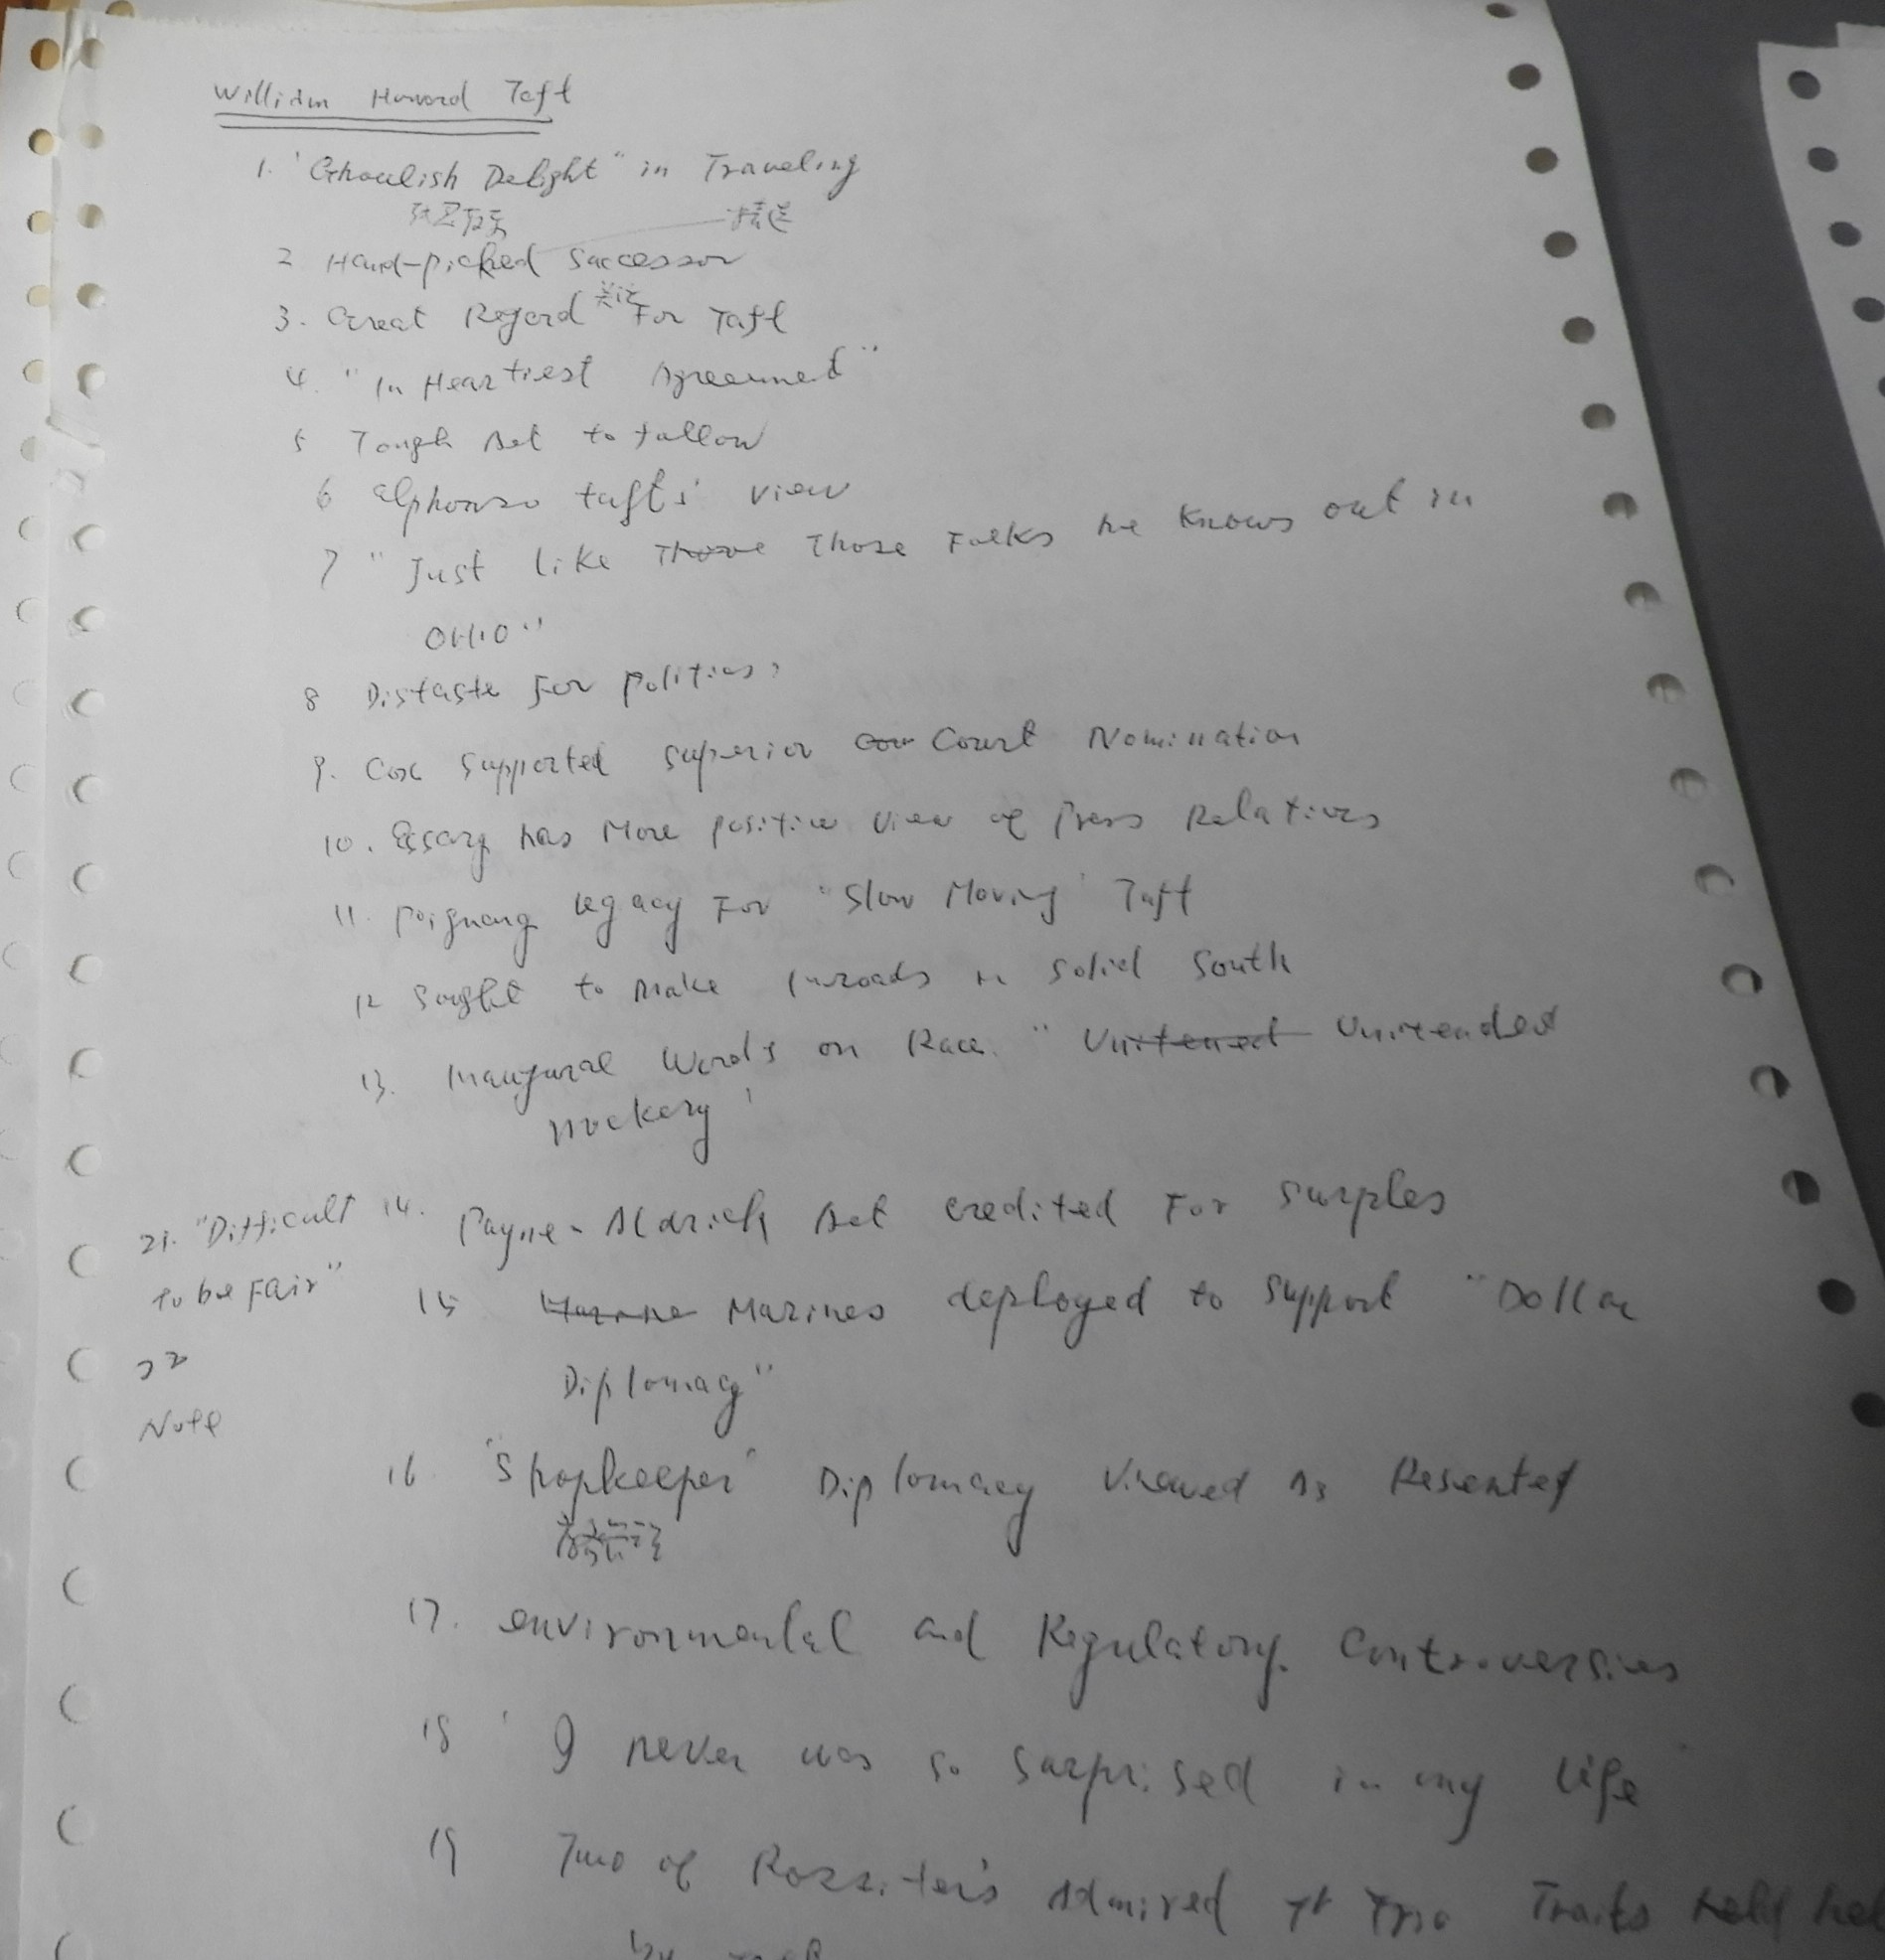 William Howard Taft
1. "Ghoulish Delight" in Traveling
精选
2 Hand-picked Successor
关注
3. Great Regard For Taft
4. "In Heartiest Agreement"
5 Tough Act to follow
6 Alphonso taft's view
7 "Just like Those Folks he knows out in
OHIO"
8 Distaste For politics,
9. Cox supported superior Court Nomination
10. Essary has More positive View of Press Relatives
11. poignang legacy For "Slow Moving" Taft
12 Sought to make inroads in solid South
13. Inaugural Words on Race. " Unitended
Mockery"
14. Payne-Aldrich Act credited For surples
15 Marines deployed to support "Dollar
Diplomacy"
16 "Shopkeeper" Diplomacy Viewed As Resented
17. environmental and Regulatory Controversies
18 "I never was so surprised in my life"
19 Two of Rossiter's Admired Traits held
by Taft
21. "Difficult
to be Fair"
22
Note